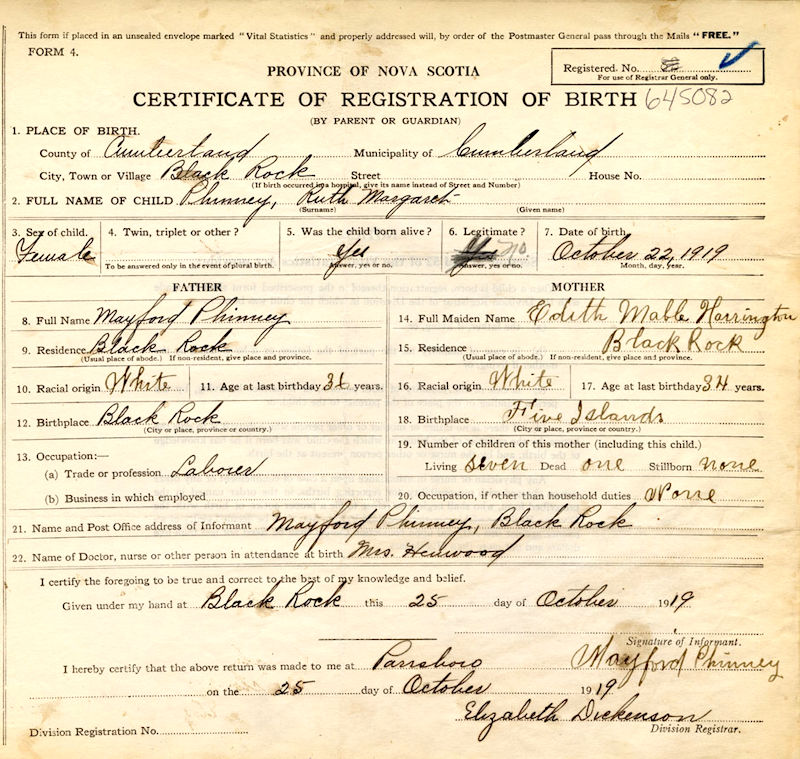 This form if placed in an unsealed envelope marked "Vital Statistics" and properly addressed will, by order of the Postmaster General pass through the Mails "FREE."
FORM 4.
Registered. No.
For use of Registrar General only.
PROVINCE OF NOVA SCOTIA
CERTIFICATE OF REGISTRATION OF BIRTH 645082
(BY PARENT OR GUARDIAN)
1. PLACE OF BIRTH.
County of Cumberland Municipality of Cumberland
City, Town or Village Black Rock Street House No.
(If birth occurred in a hospital, give its name instead of Street and Number)
2. FULL NAME OF CHILD Phinney, Ruth Margaret
(Surname) (Given name)
3. Sex of child. 4. Twin, triplet or other? 5. Was the child born alive? 6. Legitimate? 7. Date of birth.
Female Yes Yes no October 22, 1919
To be answered only in the event of plural birth. Answer, yes or no. Answer, yes or no. Month, day, year.
FATHER
8. Full Name Mayford Phinney
9. Residence Black Rock
(Usual place of abode.) If non-resident, give place and province.
10. Racial origin White 11. Age at last birthday 31 years.
12. Birthplace Black Rock
(City or place, province or country.)
13. Occupation:—
(a) Trade or profession Labourer
(b) Business in which employed
MOTHER
14. Full Maiden Name Edith Mable Harrington
15. Residence Black Rock
(Usual place of abode.) If non-resident, give place and province.
16. Racial origin White 17. Age at last birthday 34 years.
18. Birthplace Five Islands
(City or place, province or country.)
19. Number of children of this mother (including this child.)
Living seven Dead one Stillborn none
20. Occupation, if other than household duties None
21. Name and Post Office address of Informant Mayford Phinney, Black Rock
22. Name of Doctor, nurse or other person in attendance at birth Mrs. Henwood
I certify the foregoing to be true and correct to the best of my knowledge and belief.
Given under my hand at Black Rock this 25 day of October 1919
Signature of Informant.
Mayford Phinney
I hereby certify that the above return was made to me at Parrsboro
on the 25 day of October 1919
Elizabeth Dickenson
Division Registration No. Division Registrar.